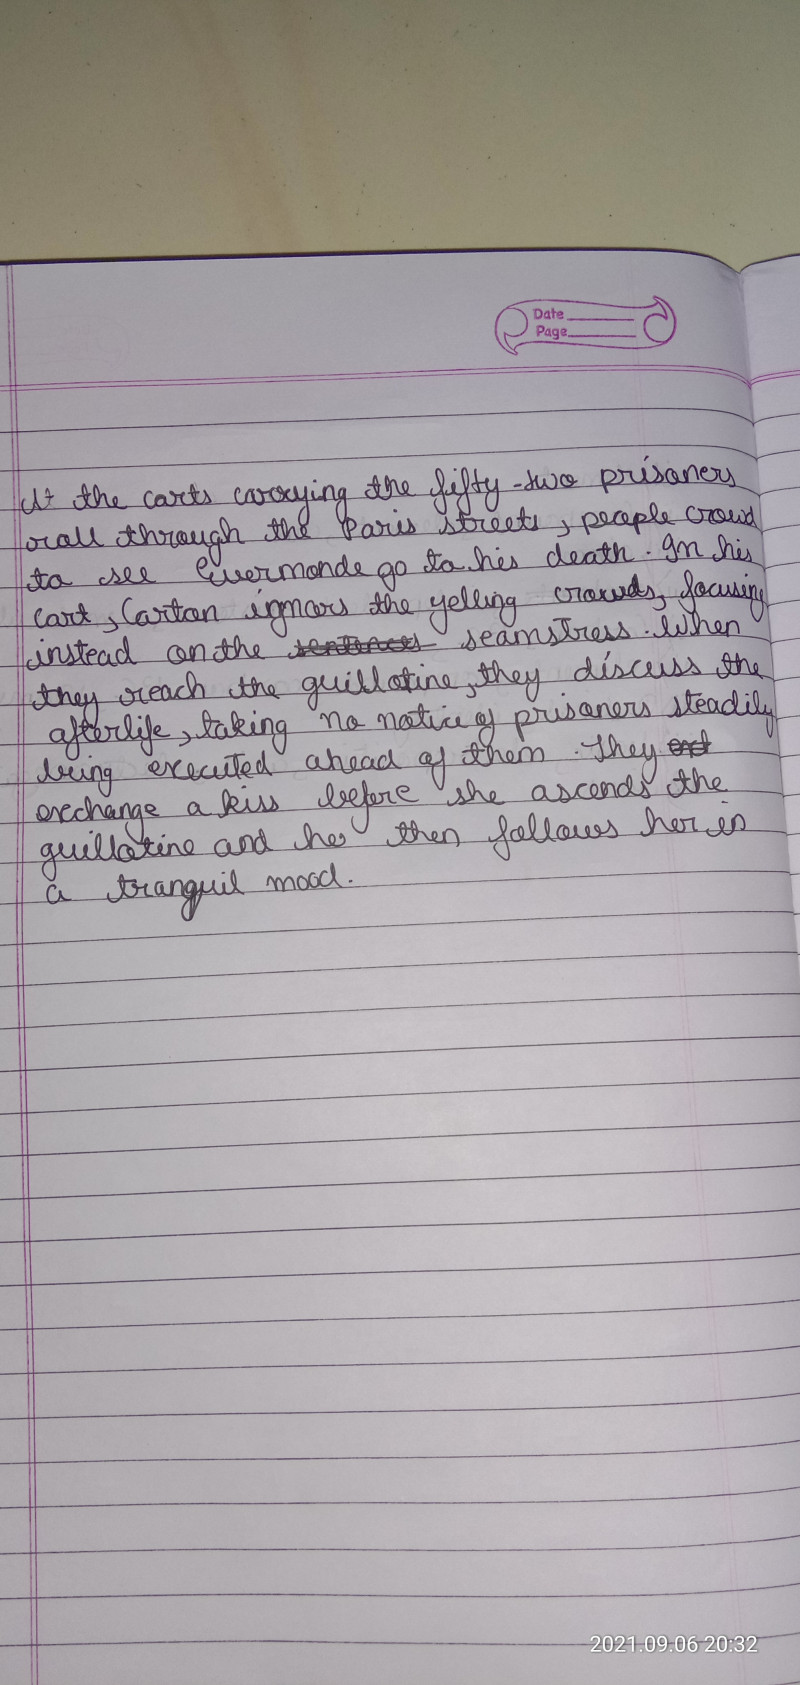 Date
Page
At the carts carrying the fifty-two prisoners
roll through the Paris streets, people crowd
to see Evermonde go to his death. In his
cart, Carton ignors the yelling crowds, focusing
instead on the sentences seamstress. When
they reach the guillotine, they discuss the
afterlife, taking no notice of prisoners steadily
being executed ahead of them. They
exchange a kiss before she ascends the
guillotine and he then follows her in
a tranquil mood.
2021.09.06 20:32